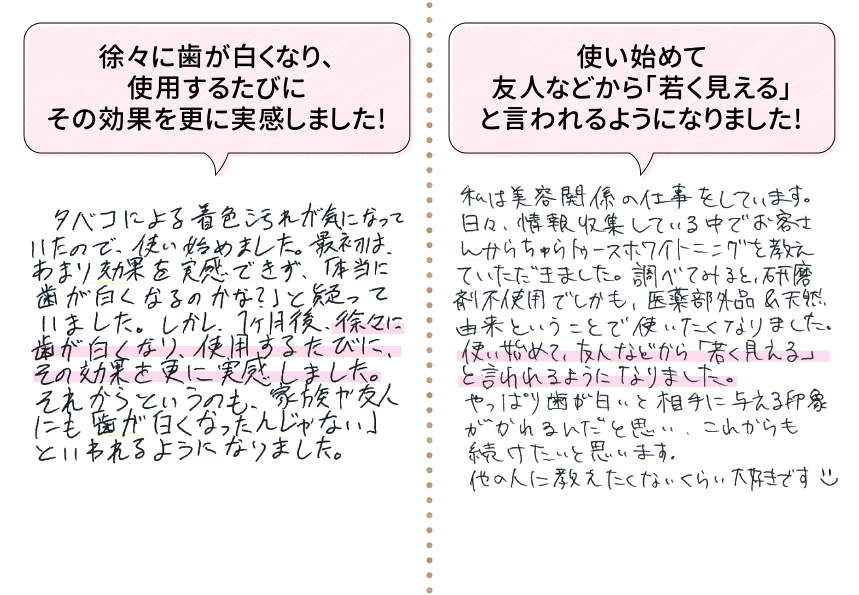 徐々に歯が白くなり、
使用するたびに
その効果を更に実感しました!
タベコによる着色汚れが気になって
いたので、使い始めました。最初は、
あまり効果を実感できず、「本当に
歯が白くなるのかな?」と疑って
いました。しかし、1ヶ月後、徐々に
歯が白くなり、使用するたびに、
その効果を更に実感しました。
それからというのも、家族や友人
にも「歯が白くなったんじゃない」
といわれるようになりました。
使い始めて
友人などから「若く見える」
と言われるようになりました!
私は美容関係の仕事をしています。
日々、情報収集している中でお客さ
んからちゅらトゥースホワイトニングを教え
ていただきました。調べてみると、研磨
剤不使用でしかも、医薬部外品&天然
由来ということで使いたくなりました。
使い始めて、友人などから「若く見える」
と言われるようになりました。
やっぱり歯が白いと相手に与える印象
がかわるんだと思い、これからも
続けたいと思います。
他の人に教えたくないくらい大好きです